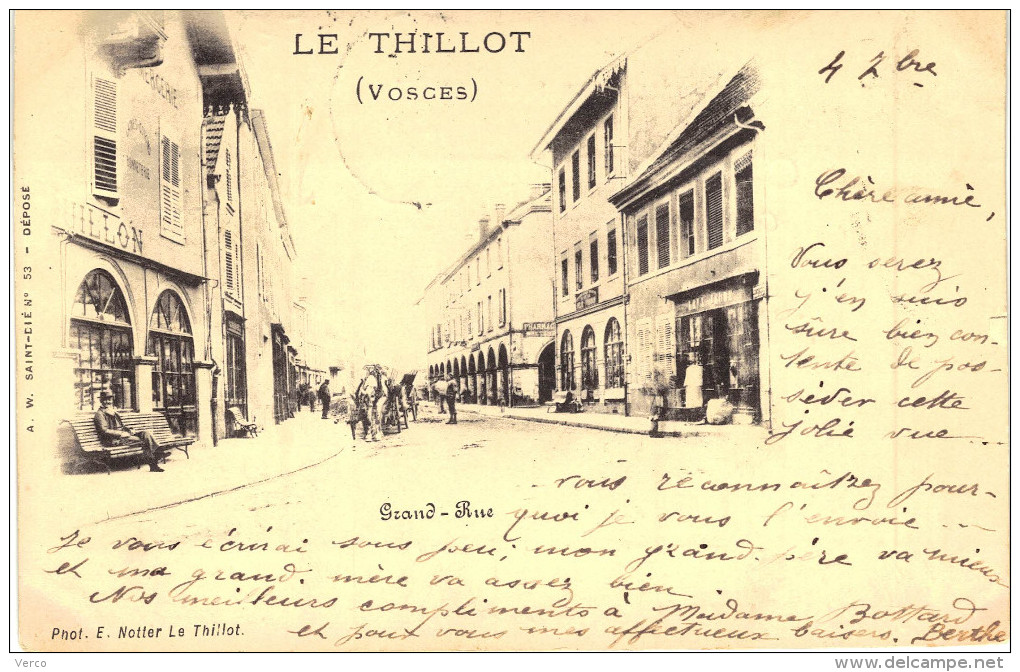 LE THILLOT
(VOSGES)
4 7bre
Chère amie,
Vous serez
j'en suis
sûre bien con-
tente de pos-
séder cette
jolie vue ...
vous reconnaîtrez pour-
quoi je vous l'envoie ...
Je vous écrirai sous peu; mon grand. père va mieux
et ma grand. mère va assez bien
Nos meilleurs compliments à Madame Bottard
et pour vous mes affectueux baisers. Berthe
Grand-Rue
Phot. E. Notter Le Thillot.
A. W. SAINT-DIÉ Nº 53 — DÉPOSÉ
MERCERIE
ILLON
PHARMAC
Verco
http://www.delcampe.net